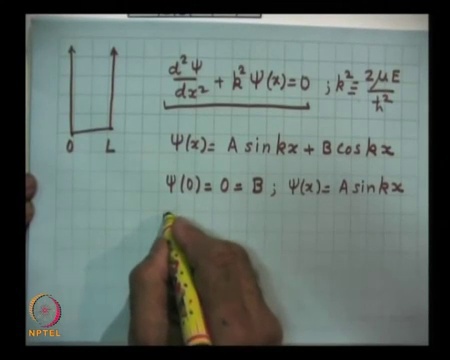 d²Ψ/dx² + k² Ψ(x) = 0 ; k² = 2μE/ħ²
0 L
Ψ(x) = A sin kx + B cos kx
Ψ(0) = 0 = B ; Ψ(x) = A sin kx
NPTEL